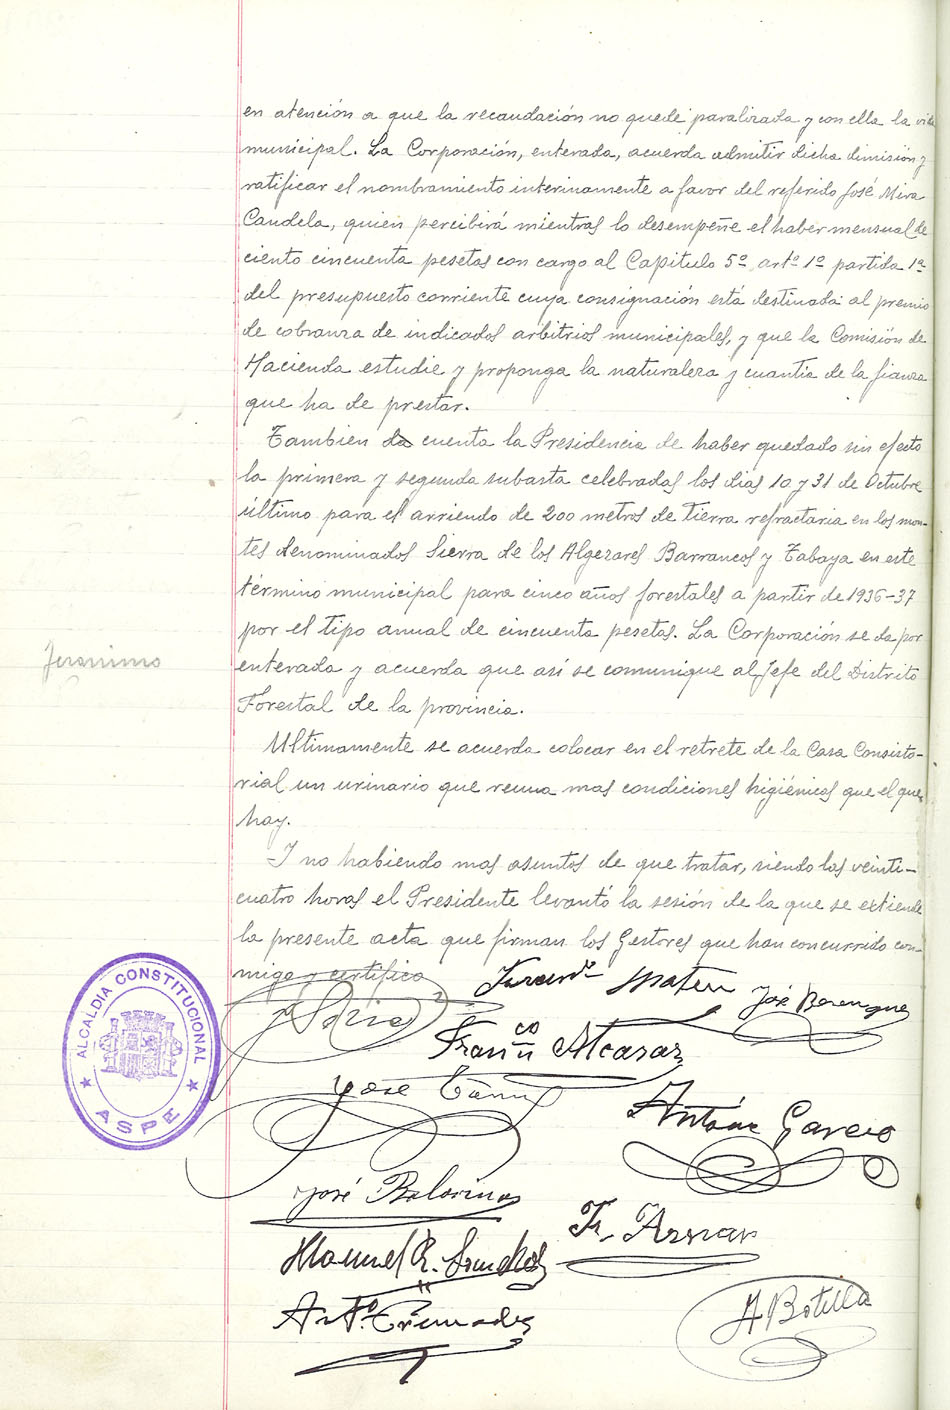 en atención a que la recaudación no quede paralizada y con ella la vida
municipal. La Corporación, enterada, acuerda admitir dicha dimisión y
ratificar el nombramiento interinamente a favor del referido José Mira
Candela, quien percibirá mientras lo desempeñe el haber mensual de
ciento cincuenta pesetas con cargo al Capitulo 5º artº 1º partida 1ª
del presupuesto corriente cuya consignación está destinada al premio
de cobranza de indicados arbitrios municipales, y que la Comisión de
Hacienda estudie y proponga la naturaleza y cuantia de la fianza
que ha de prestar.
Tambien da cuenta la Presidencia de haber quedado sin efecto
la primera y segunda subasta celebradas los dias 10 y 31 de Octubre
último para el arriendo de 200 metros de tierra refractaria en los mon-
tes denominados Sierra de los Algezares Barrancos y Tabaya en este
término municipal para cinco años forestales a partir de 1936-37
por el tipo anual de cincuenta pesetas. La Corporación se da por
enterada y acuerda que así se comunique al Jefe del Distrito
Jeronimo
Forestal de la provincia.
Ultimamente se acuerda colocar en el retrete de la Casa Consisto-
rial un urinario que reuna mas condiciones higiénicas que el que
hay.
Y no habiendo mas asuntos de que tratar, siendo las veinti-
cuatro horas el Presidente levantó la sesión de la que se extiende
la presente acta que firman los Gestores que han concurrido con-
migo y certifico
Mateu José Berenguer
ALCALDIA CONSTITUCIONAL
ASPE
Franco Alcaraz
José
Antonio Garcia
José
Fr. Aznar
Manuel R.
A Botella